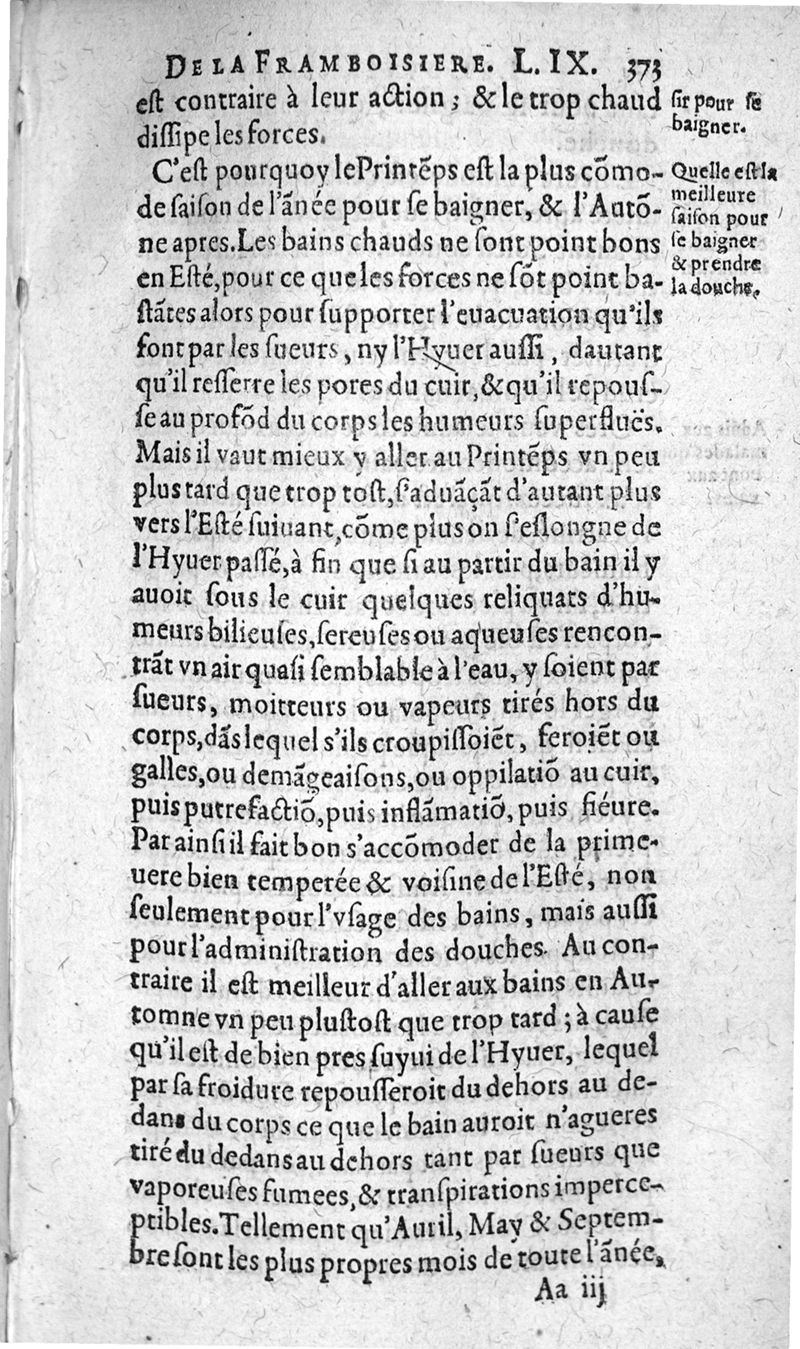 DE LA FRAMBOISIERE. L. IX. 373
eſt contraire à leur action; & le trop chaud
diſſipe les forces.
C'eſt pourquoy le Printẽps eſt la plus cõmo-
de ſaiſon de l'ãnée pour ſe baigner, & l'Autõ-
ne apres. Les bains chauds ne ſont point bons
en Eſté, pour ce que les forces ne ſõt point ba-
ſtãtes alors pour ſupporter l'euacuation qu'ils
font par les ſueurs, ny l'Hyuer auſſi, dautant
qu'il reſſerre les pores du cuir, & qu'il repouſ-
ſe au profõd du corps les humeurs ſuperfluës.
Mais il vaut mieux y aller au Printẽps vn peu
plus tard que trop toſt, ſ'aduãçãt d'autant plus
vers l'Eſté ſuiuant, cõme plus on ſ'eſlongne de
l'Hyuer paſſé, à fin que ſi au partir du bain il y
auoit ſous le cuir quelques reliquats d'hu-
meurs bilieuſes, ſereuſes ou aqueuſes rencon-
trãt vn air quaſi ſemblable à l'eau, y ſoient par
ſueurs, moitteurs ou vapeurs tirés hors du
corps, dãs lequel s'ils croupiſſoiẽt, feroiẽt ou
galles, ou demãgeaiſons, ou oppilatiõ au cuir,
puis putrefactiõ, puis inflãmatiõ, puis fiéure.
Par ainſi il fait bon s'accõmoder de la prime-
uere bien temperée & voiſine de l'Eſté, non
ſeulement pour l'vſage des bains, mais auſſi
pour l'adminiſtration des douches. Au con-
traire il eſt meilleur d'aller aux bains en Au-
tomne vn peu pluſtoſt que trop tard; à cauſe
qu'il eſt de bien pres ſuyui de l'Hyuer, lequel
par ſa froidure repouſſeroit du dehors au de-
dans du corps ce que le bain auroit n'agueres
tiré du dedans au dehors tant par ſueurs que
vaporeuſes fumees, & tranſpirations imperce-
ptibles. Tellement qu'Auril, May & Septem-
bre ſont les plus propres mois de toute l'ãnée,
Aa iij
ſir pour ſe
baigner.
Quelle eſt la
meilleure
ſaiſon pour
ſe baigner
& prendre
la douche.